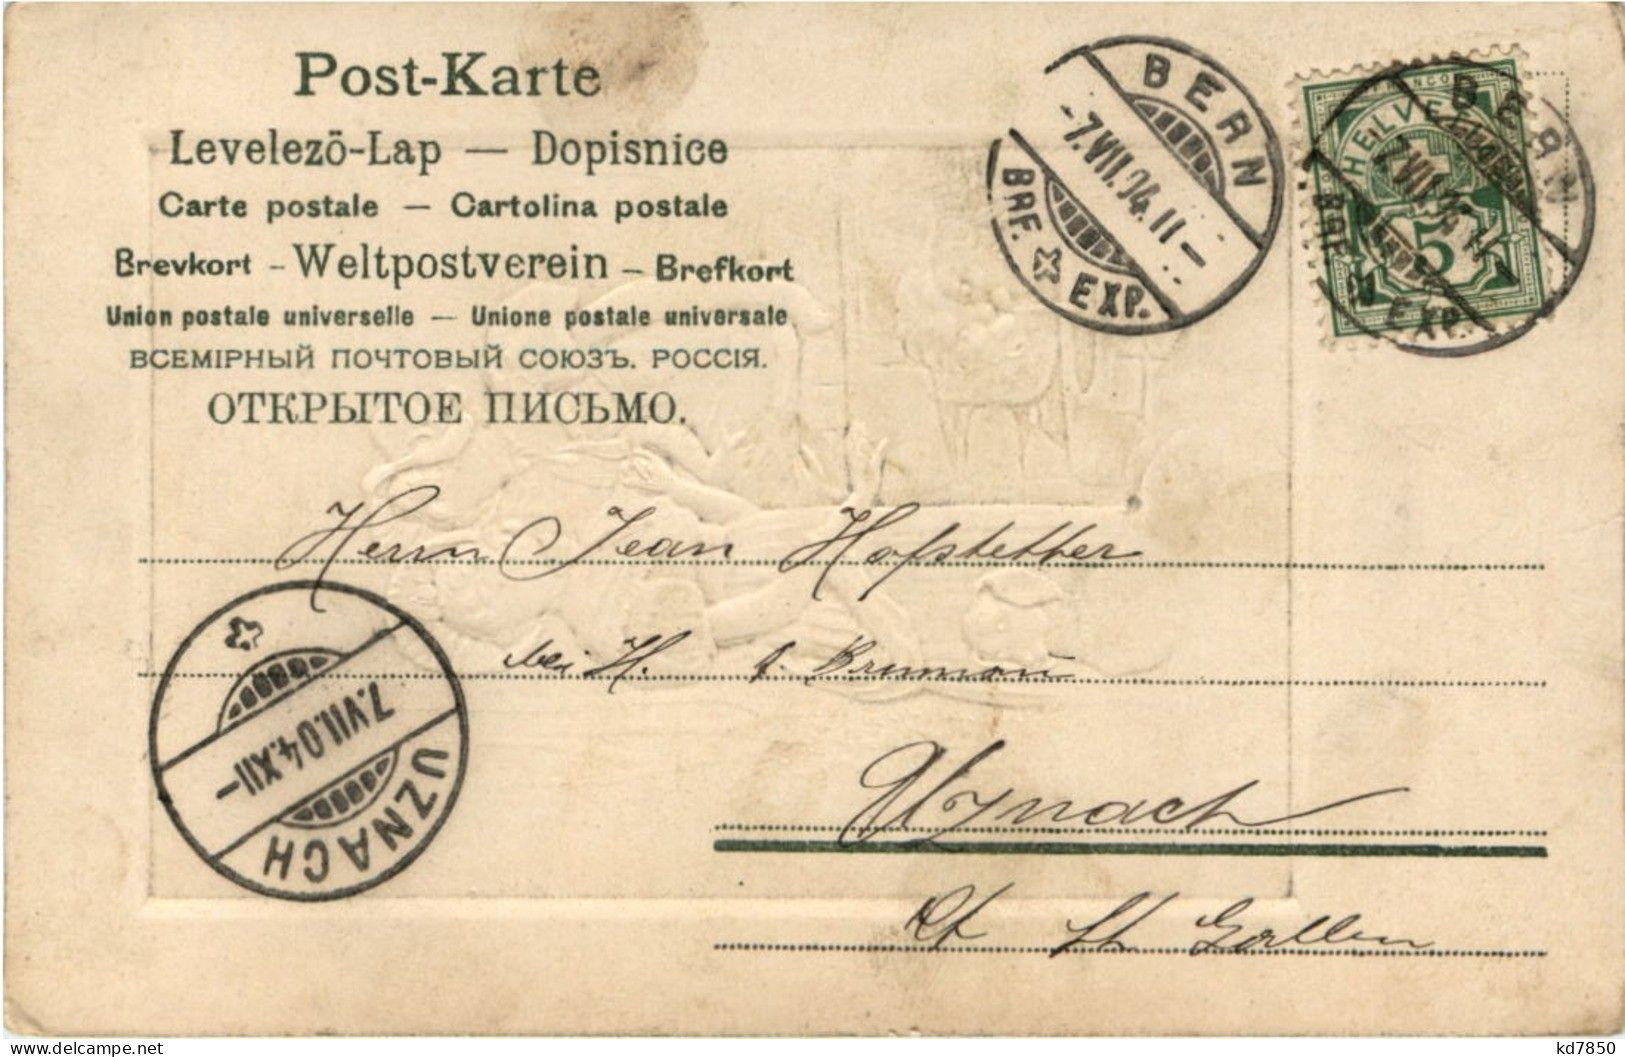 Post-Karte
Levelezö-Lap — Dopisnice
Carte postale — Cartolina postale
Brevkort - Weltpostverein - Brefkort
Union postale universelle — Unione postale universale
ВСЕМІРНЫЙ ПОЧТОВЫЙ СОЮЗЪ. РОССІЯ.
ОТКРЫТОЕ ПИСЬМО.
BERN
-7.VII.04.11-
BRF. EXP.
FRANCO
HELVETIA
5
BERN
7.VII.04.11-
BRF. EXP.
Herrn Jean Hofstetter
bei H.
Uznach
Kt St Gallen
UZNACH
7.VII.04.XII-
delcampe.net
kd7850